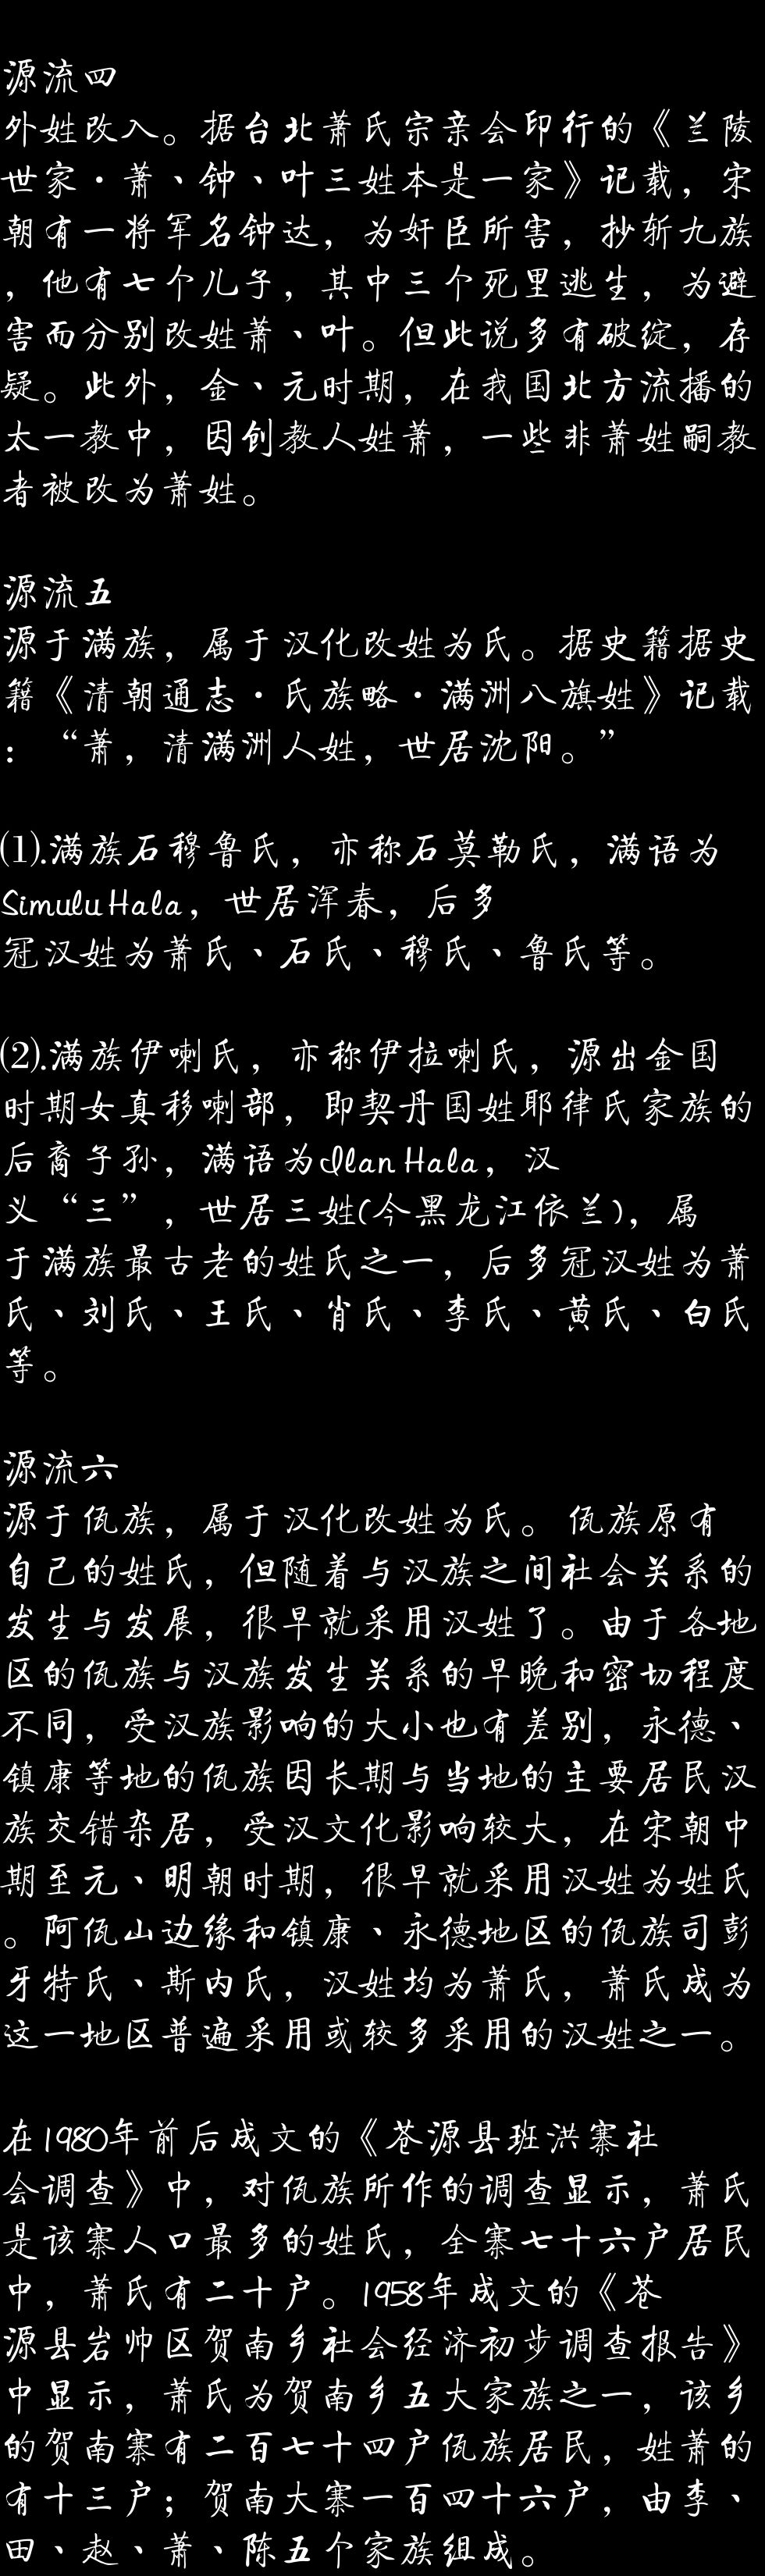 源流四
外姓改入。据台北萧氏宗亲会印行的《兰陵
世家·萧、钟、叶三姓本是一家》记载，宋
朝有一将军名钟达，为奸臣所害，抄斩九族
，他有七个儿子，其中三个死里逃生，为避
害而分别改姓萧、叶。但此说多有破绽，存
疑。此外，金、元时期，在我国北方流播的
太一教中，因创教人姓萧，一些非萧姓嗣教
者被改为萧姓。
源流五
源于满族，属于汉化改姓为氏。据史籍据史
籍《清朝通志·氏族略·满洲八旗姓》记载
：“萧，清满洲人姓，世居沈阳。”
⑴.满族石穆鲁氏，亦称石莫勒氏，满语为
Simulu Hala，世居浑春，后多
冠汉姓为萧氏、石氏、穆氏、鲁氏等。
⑵.满族伊喇氏，亦称伊拉喇氏，源出金国
时期女真移喇部，即契丹国姓耶律氏家族的
后裔子孙，满语为Ilan Hala，汉
义“三”，世居三姓(今黑龙江依兰)，属
于满族最古老的姓氏之一，后多冠汉姓为萧
氏、刘氏、王氏、肖氏、李氏、黄氏、白氏
等。
源流六
源于佤族，属于汉化改姓为氏。佤族原有
自己的姓氏，但随着与汉族之间社会关系的
发生与发展，很早就采用汉姓了。由于各地
区的佤族与汉族发生关系的早晚和密切程度
不同，受汉族影响的大小也有差别，永德、
镇康等地的佤族因长期与当地的主要居民汉
族交错杂居，受汉文化影响较大，在宋朝中
期至元、明朝时期，很早就采用汉姓为姓氏
。阿佤山边缘和镇康、永德地区的佤族司彭
牙特氏、斯内氏，汉姓均为萧氏，萧氏成为
这一地区普遍采用或较多采用的汉姓之一。
在1980年前后成文的《苍源县班洪寨社
会调查》中，对佤族所作的调查显示，萧氏
是该寨人口最多的姓氏，全寨七十六户居民
中，萧氏有二十户。1958年成文的《苍
源县岩帅区贺南乡社会经济初步调查报告》
中显示，萧氏为贺南乡五大家族之一，该乡
的贺南寨有二百七十四户佤族居民，姓萧的
有十三户；贺南大寨一百四十六户，由李、
田、赵、萧、陈五个家族组成。